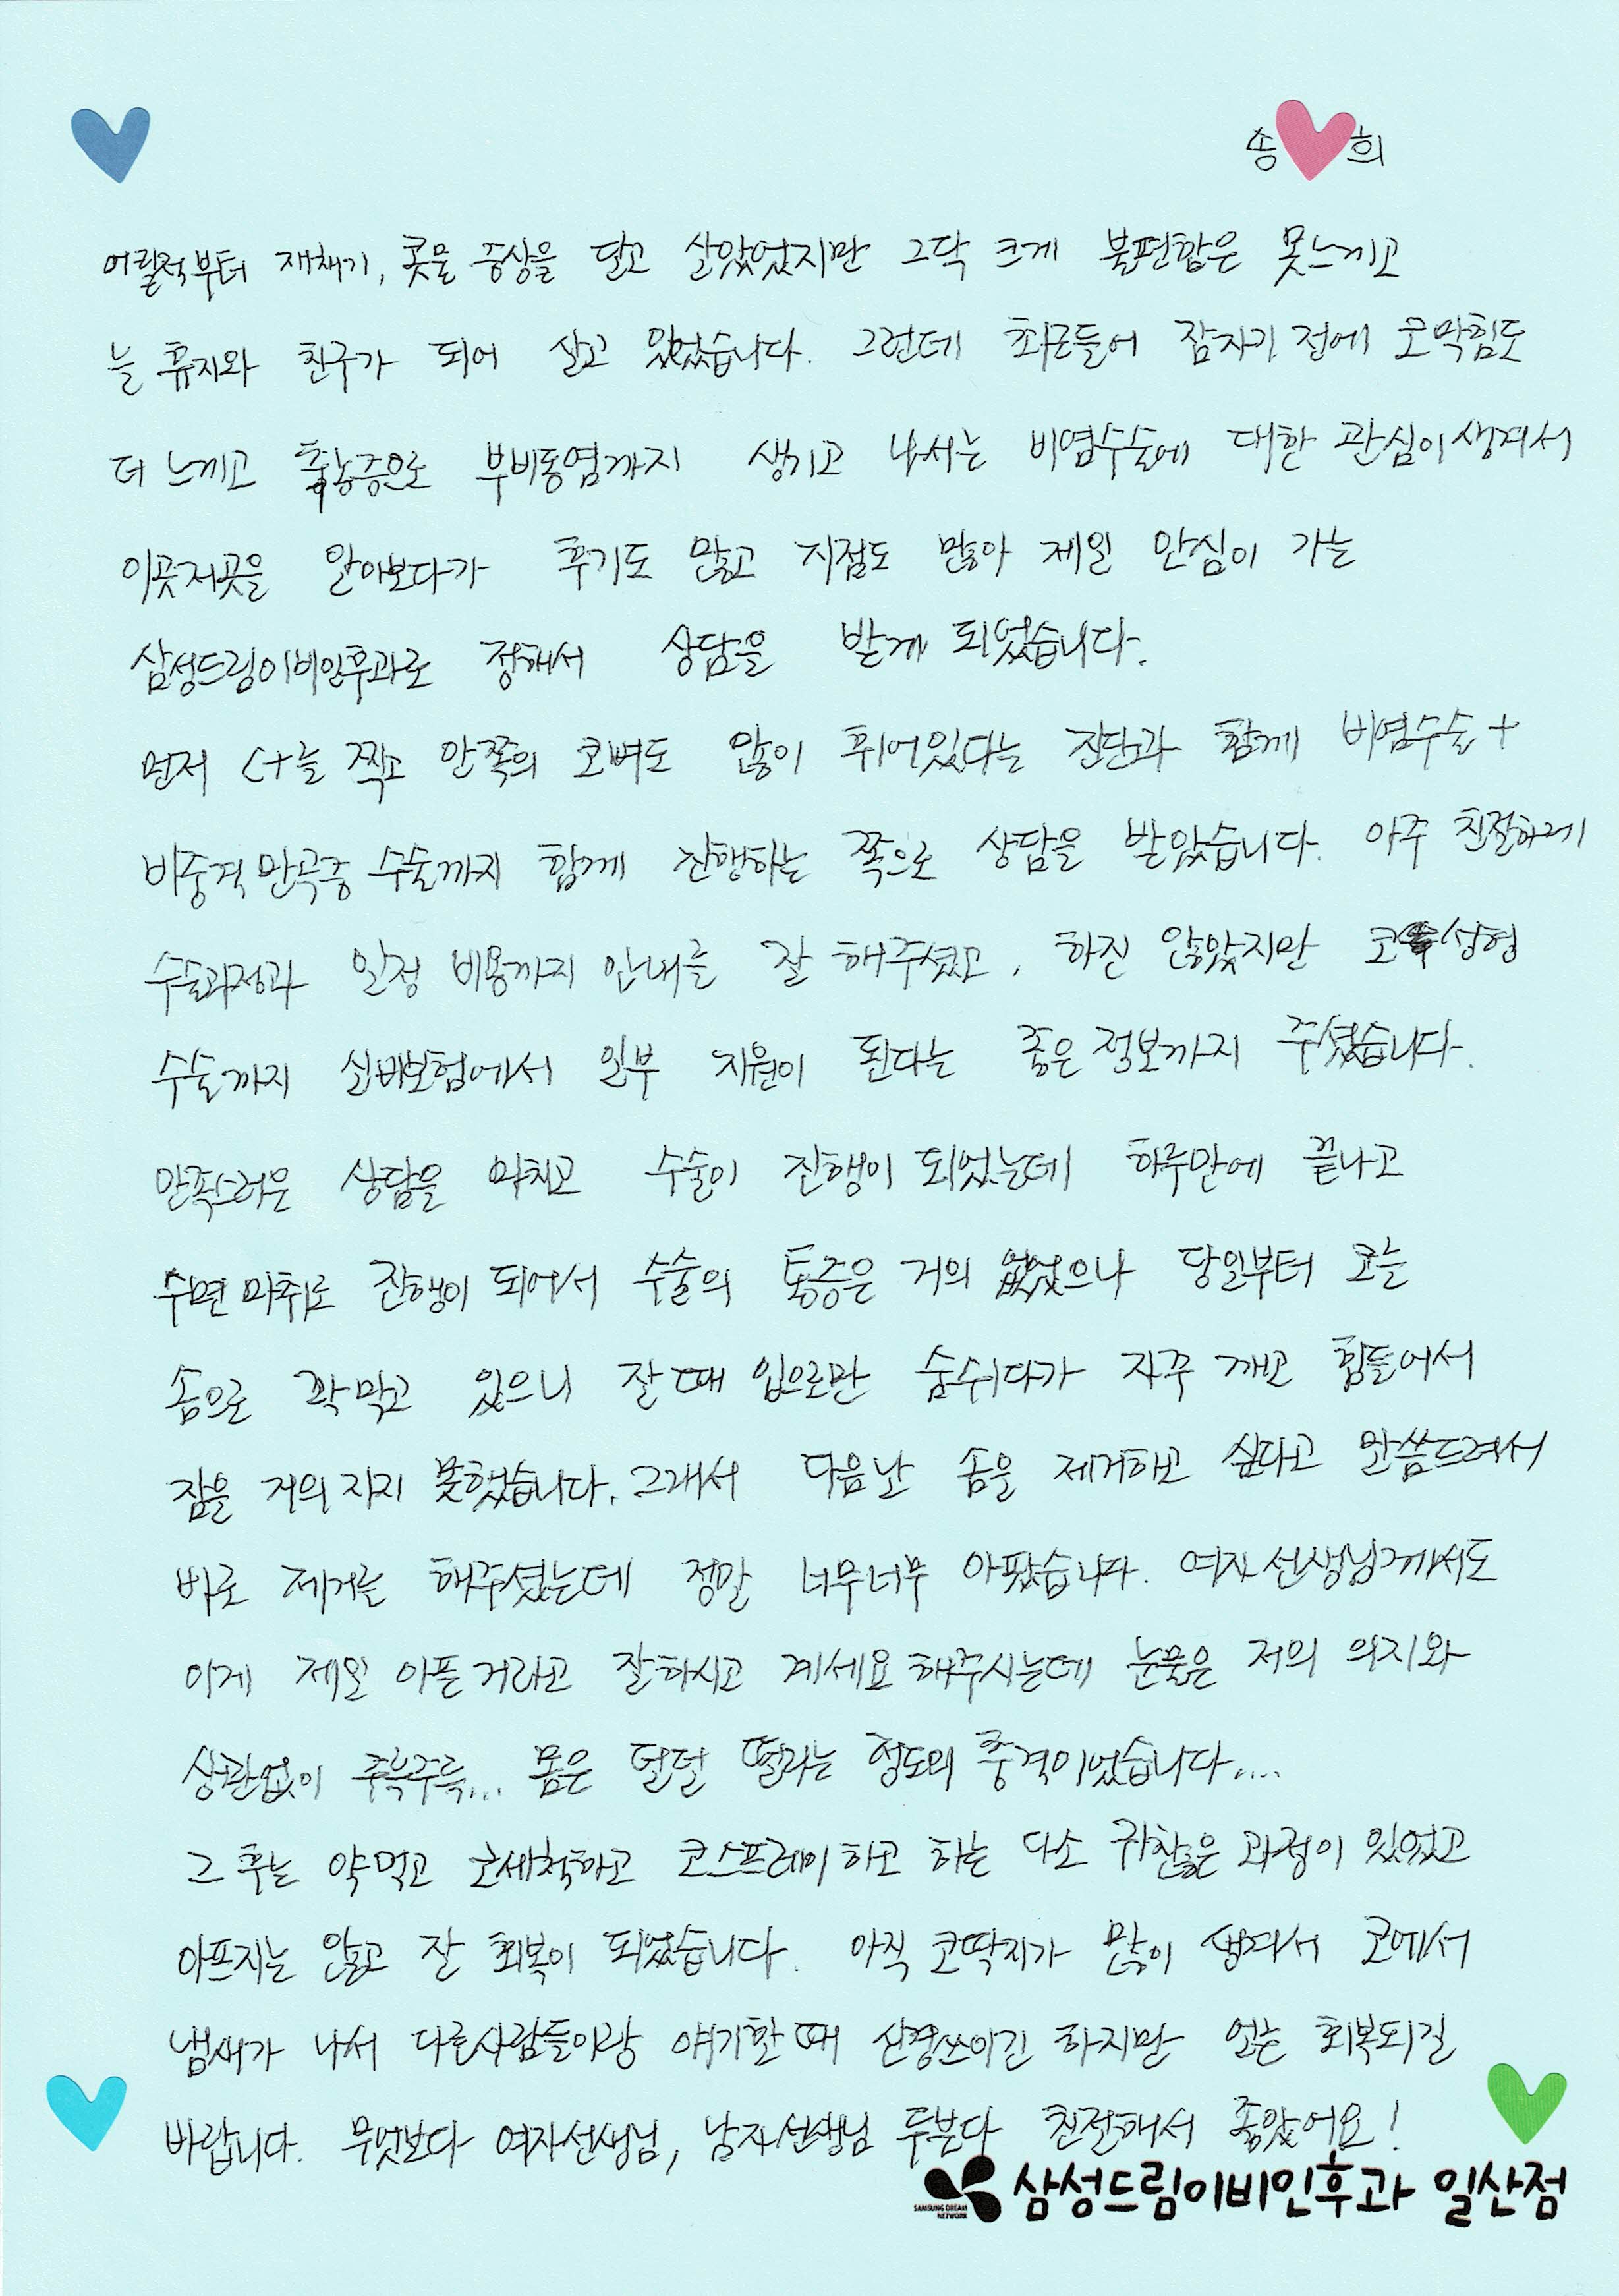 송 희
어릴적부터 재채기, 콧물 증상을 달고 살았었지만 그닥 크게 불편함은 못느끼고
늘 휴지와 친구가 되어 살고 있었습니다. 그런데 최근들어 잠자기 전에 코막힘도
더 느끼고 축농증으로 부비동염까지 생기고 나서는 비염수술에 대한 관심이 생겨서
이곳저곳을 알아보다가 후기도 많고 지점도 많아 제일 안심이 가는
삼성드림이비인후과로 정해서 상담을 받게 되었습니다.
먼저 CT를 찍고 안쪽의 코뼈도 많이 휘어있다는 진단과 함께 비염수술+
비중격만곡증 수술까지 함께 진행하는 쪽으로 상담을 받았습니다. 아주 친절하게
수술과정과 일정 비용까지 안내를 잘 해주셨고, 하진 않았지만 코성형
수술까지 실비보험에서 일부 지원이 된다는 좋은 정보까지 주셨습니다.
만족스러운 상담을 마치고 수술이 진행이 되었는데 하루만에 끝나고
수면마취로 진행이 되어서 수술의 통증은 거의 없었으나 당일부터 코를
솜으로 꽉 막고 있으니 잘때 입으로만 숨쉬다가 자꾸 깨고 힘들어서
잠을 거의 자지 못했습니다. 그래서 다음날 솜을 제거하고 싶다고 말씀드려서
바로 제거를 해주셨는데 정말 너무너무 아팠습니다. 여자선생님께서도
이게 제일 아픈거라고 잘하시고 계세요 해주시는데 눈물은 저의 의지와
상관없이 주륵주륵... 몸은 덜덜 떨리는 정도의 충격이었습니다....
그 후는 약먹고 코세척하고 코스프레이하고 하는 다소 귀찮은 과정이 있었고
아프지는 않고 잘 회복이 되었습니다. 아직 코딱지가 많이 생겨서 코에서
냄새가 나서 다른사람들이랑 얘기할 때 신경쓰이긴 하지만 얼른 회복되길
바랍니다. 무엇보다 여자선생님, 남자선생님 두분다 친절해서 좋았어요!
SAMSUNG DREAM NETWORK 삼성드림이비인후과 일산점